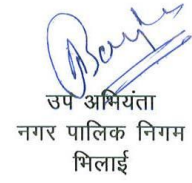 उप अभियंता
नगर पालिक निगम
भिलाई